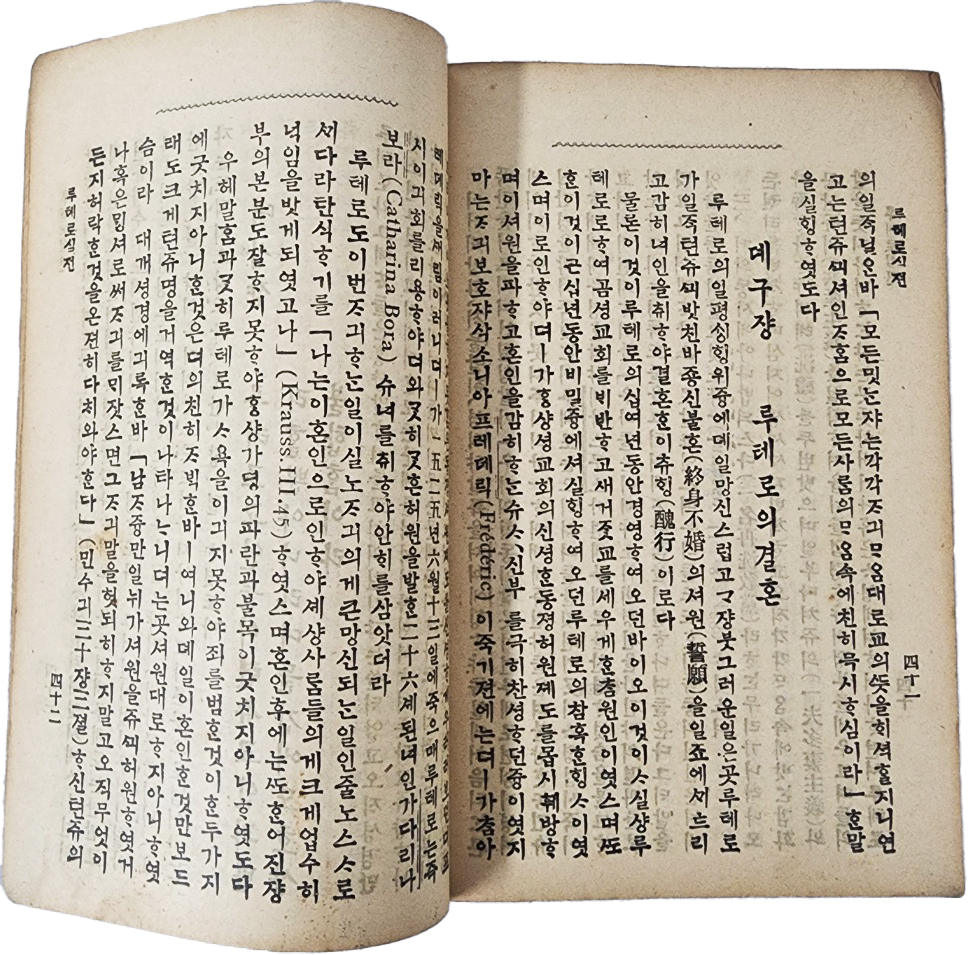 루테로실젼
四十一
의일즉닐은바「모든밋는쟈는각각ᄌᆞ긔ᄆᆞᄋᆞᆷ대로교의ᄯᅳᆺ을ᄒᆡ셕ᄒᆞᆯ지니연
고는텬쥬ᄭᅴ셔인ᄌᆞᄒᆞᆷ으로모든사ᄅᆞᆷ의ᄆᆞᄋᆞᆷ속에친히믁시ᄒᆞ심이라」ᄒᆞᆫ말
을실ᄒᆡᆼᄒᆞ엿도다
뎨구쟝 루테로의결혼
루테로의일평ᄉᆡᆼᄒᆡᆼ위즁에뎨일망신스럽고ᄀᆞ쟝붓그러운일은곳루테로
가일즉텬쥬ᄭᅴ밧친바죵신불혼(終身不婚)의셔원(誓願)을일죠에ᄭᅵ트리
고감히녀인을취ᄒᆞ야결혼ᄒᆞᆫ이츄ᄒᆡᆼ(醜行)이로다
물론이것이루테로의십여년동안경영ᄒᆞ여오던바이오이것이ᄉᆞ실샹루
테로로ᄒᆞ여곰셩교회를ᄇᆡ반ᄒᆞ고새거ᄌᆞᆺ교를세우게ᄒᆞᆫ춤원인이엿스며ᄯᅩ
ᄒᆞᆫ이것이근십년동안비밀즁에셔실ᄒᆡᆼᄒᆞ여오던루테로의참혹ᄒᆞᆫᄒᆡᆼᄉᆞ이엿
스며이로인ᄒᆞ야뎌ㅣ가ᄒᆞᆼ샹셩교회의신셩ᄒᆞᆫ동졍허원졔도를몹시훼방ᄒᆞ
며이셔원을파ᄒᆞ고혼인을감히ᄒᆞ는슈ᄉᆞ신부들을극히찬셩ᄒᆞ던즁이엿지
마는ᄌᆞ긔보호쟈삭소니아프레데릭(Fréderic)이죽기젼에는뎌ㅣ가춤아
시이긔회를리용ᄒᆞ야뎌와ᄀᆞᆺ히ᄀᆞᆺ흔허원을발ᄒᆞᆫ二十六계된녀인가다리나
보라(Catharina Bora) 슈녀를취ᄒᆞ야안ᄒᆡ를삼앗더라
루테로도이번ᄌᆞ긔ᄒᆞ는일이실노ᄌᆞ긔의게큰망신되는일인줄노스ᄉᆞ로
ᄭᅢ다라탄식ᄒᆞ기를「나는이혼인으로인ᄒᆞ야셰샹사ᄅᆞᆷ들의게크게업수히
넉임을밧게되엿고나」(Krauss.III.45)ᄒᆞ엿스며혼인후에는ᄯᅩᄒᆞᆫ어진쟝
부의본분도잘ᄒᆞ지못ᄒᆞ야ᄒᆞᆼ샹가뎡의파란과불목이긋치지아니ᄒᆞ엿도다
우헤말ᄒᆞᆷ과ᄀᆞᆺ히루테로가ᄉᆞ욕을이긔지못ᄒᆞ야죄를범ᄒᆞᆫ것이ᄒᆞᆫ두가지
에긋치지아니ᄒᆞᆫ것은뎌의친히ᄌᆞᄇᆡᆨᄒᆞᆫ바ㅣ여니와뎨일이혼인ᄒᆞᆫ것만보드
래도크게텬쥬명을거역ᄒᆞᆫ것이나타나ᄂᆞ니뎌는곳셔원대로ᄒᆞ지아니ᄒᆞ엿
슴이라 대개셩경에긔록ᄒᆞᆫ바「남ᄌᆞ즁만일뉘가셔원을쥬ᄭᅴ허원ᄒᆞ엿거
나혹은ᄆᆡᆼ셔로써ᄌᆞ긔를ᄆᆡ잣스면그ᄌᆞ긔말을헛되히ᄒᆞ지말고오직무엇이
든지허락ᄒᆞᆫ것을온젼히다치와야ᄒᆞᆫ다」(민수긔三十쟝三졀)ᄒᆞ신텬쥬의
루테로실젼
四十二